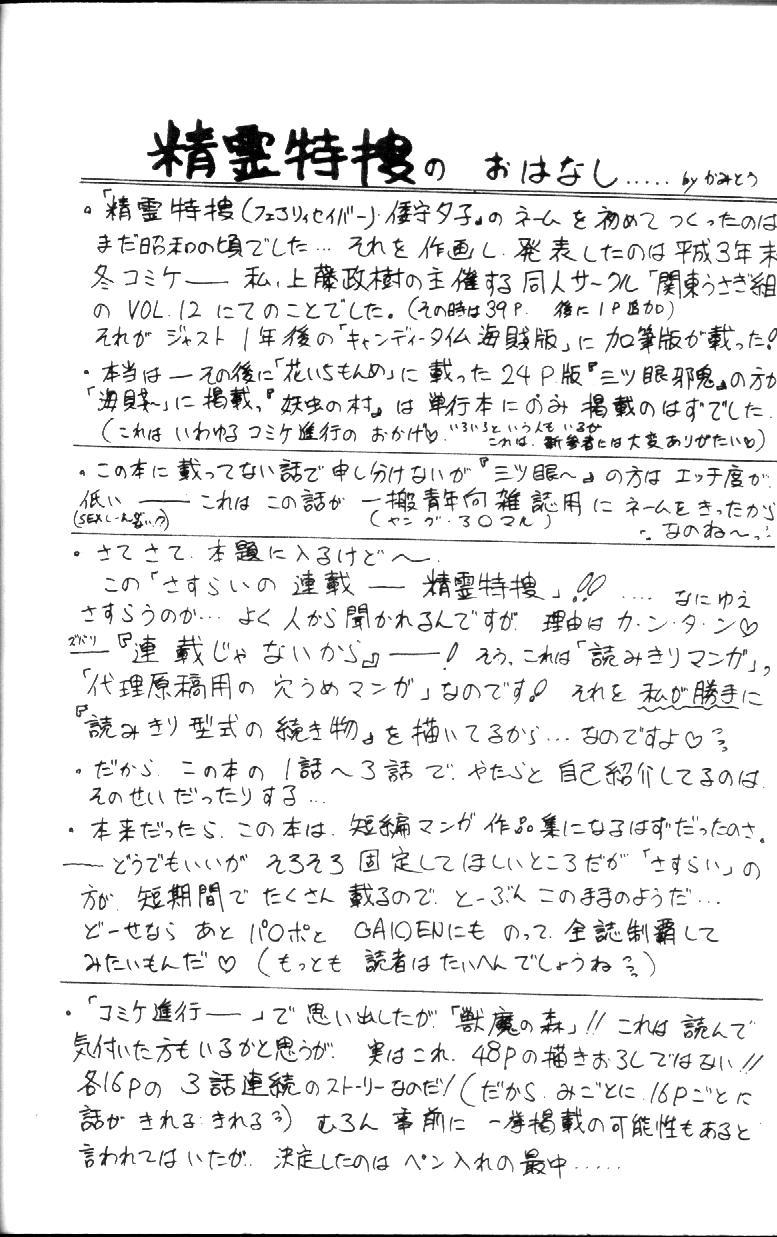 精霊特捜の おはなし..... by かみとう
。「精霊特捜(フェアリィセイバー)・倭守夕子」の ネームを初めてつくったのは
まだ昭和の頃でした… それを作画し、発表したのは平成3年末
冬コミケ―― 私、上藤政樹の主催する同人サークル「関東うさぎ組」
の VOL.12 にてのことでした。(その時は39P. 後に1P追加)
それが ジャスト 1年後の「キャンディータイム海賊版」に 加筆版が載った!
・本当は―その後に「花いちもんめ」に載った24P.版『三ツ眼邪鬼』の方が
「海賊〜」に掲載、『妖虫の村』は単行本にのみ掲載のはずでした.
(これは いわゆるコミケ進行の おかげ♡. いろいろという人もいるが
これは、新参者には大変ありがたい♡)
。この本に載ってない話で申し分けないが『三ツ眼〜』の方は エッチ度が
低い ―― これは この話が 一搬青年向雑誌用に ネームをきったから
(SEXしーん無いっ?) (ヤング・30マル) ・・なのね〜っ
・さてさて、本題に入るけど〜.
この「さすらいの連載 ― 精霊特捜」!! .... なにゆえ
さすらうのか… よく人から聞かれるんですが. 理由はカ・ン・タ・ン♡
ズバリ『連載じゃないから』――! そう、これは「読みきりマンガ」、
「代理原稿用の穴うめマンガ」なのです! それを 私が勝手に
『読みきり型式の続き物』を描いてるから… なのですよ♡
・だから、この本の 1話〜3話で、やたらと自己紹介してるのは
そのせいだったりする…
・本来だったら、この本は、短編マンガ作品集になるはずだったのさ。
――どうでもいいが そろそろ固定してほしいところだが「さすらい」の
方が、短期間でたくさん載るので、とーぶんこのままのようだ…
どーせなら あと パロポと GAIDENにも のって、全誌制覇して
みたいもんだ♡ (もっとも 読者はたいへんでしょうね)
・「コミケ進行―」で思い出したが「獣魔の森」!! これは読んで
気付いた方もいるかと思うが. 実はこれ、48Pの描きおろしではない!!
各16Pの 3話連続のストーリーなのだ!(だから、みごとに.16Pごとに
話が きれる きれる) むろん 事前に 一挙掲載の可能性もあると
言われてはいたが、決定したのは ペン入れの最中.....